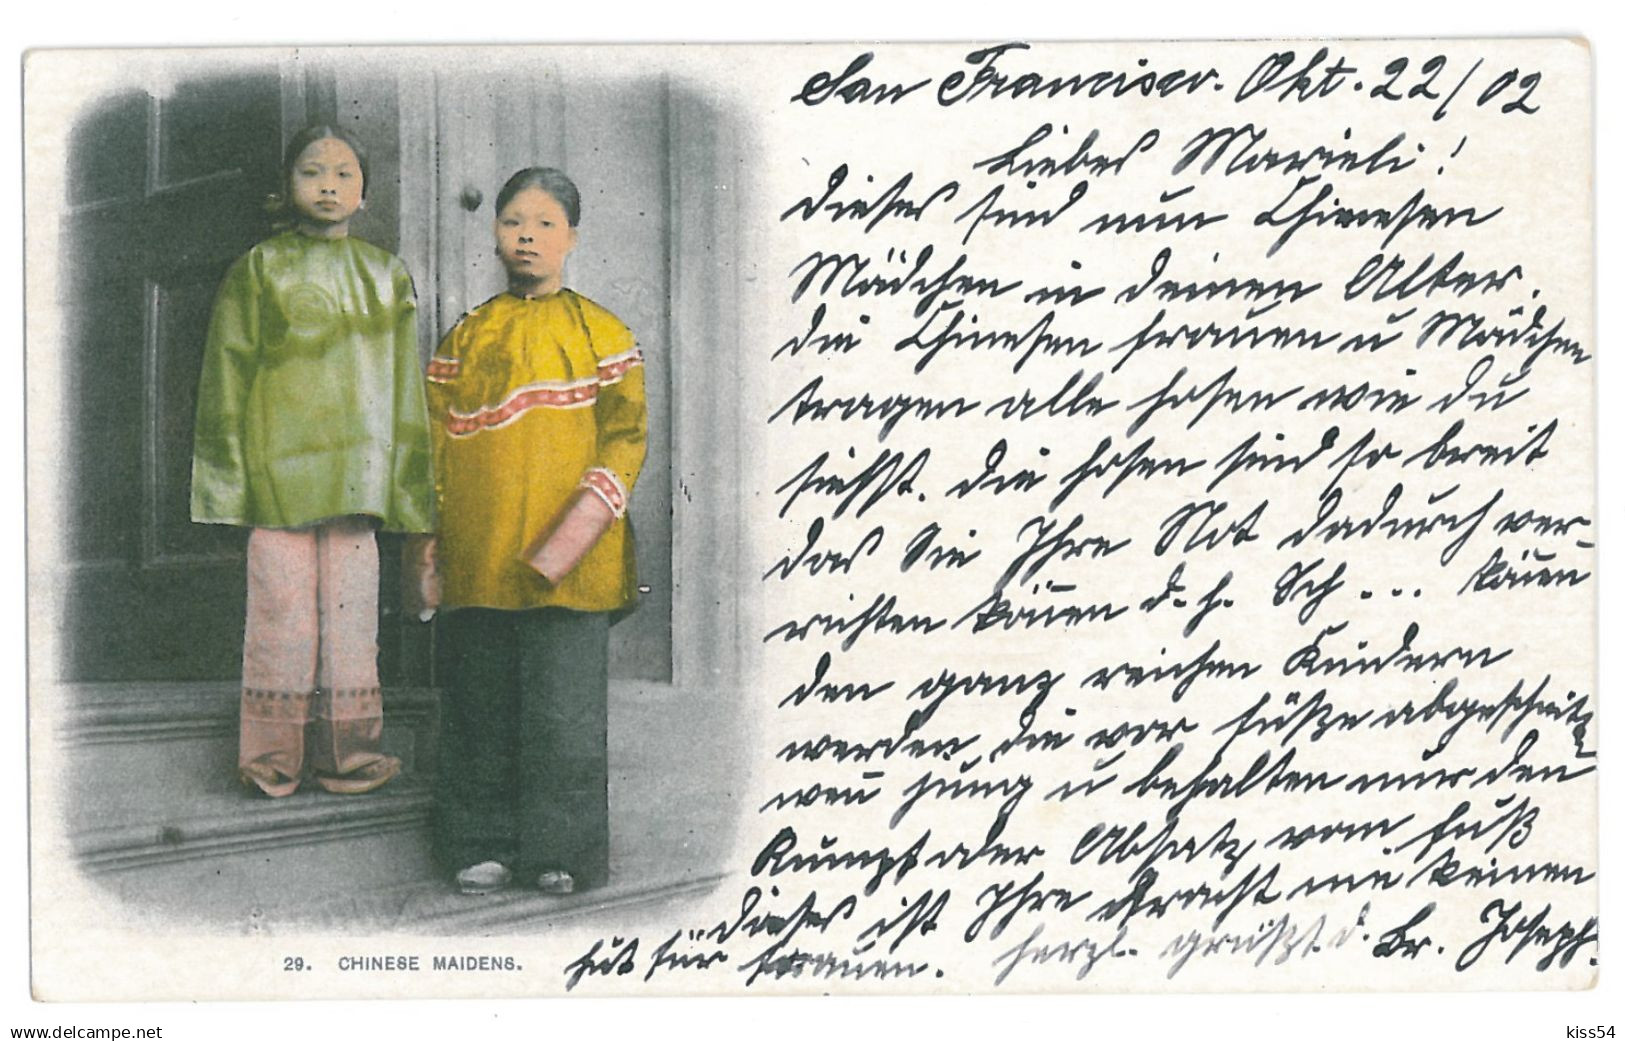 San Francisco. Okt. 22/02
Liebes Marieli!
Dieses sind nun Chinesen
Mädchen in deinen Alter.
die Chinesen frauen u Mädchen
tragen alle hosen wie du
siehsst. Die hosen sind so breit
das Sie Ihre Not dadurch ver-
richten köñen d.h. Sch... köñen
den ganz reichen Kindern
werden die vor füße abgeschnitten
weñ jung u behalten nur den
Rumpf oder Absatz vom fuß
dieses ist Ihre Pracht nie keinen
hut für frauen. herzl. grüßt d. Br. Joseph.
29. CHINESE MAIDENS.
www.delcampe.net
kiss54